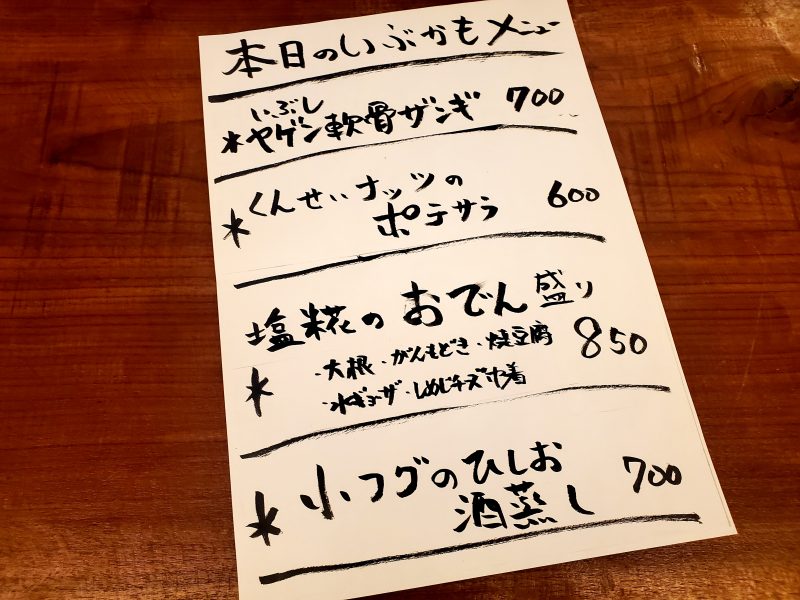 本日のいぶかもメニュー
いぶし
*ヤゲン軟骨ザンギ 700
*くんせいナッツの
ポテサラ 600
塩糀のおでん盛り 850
・大根・がんもどき・焼豆腐
*・水ギョーザ・しめじチーズ巾着
*小フグのひしお 700
酒蒸し